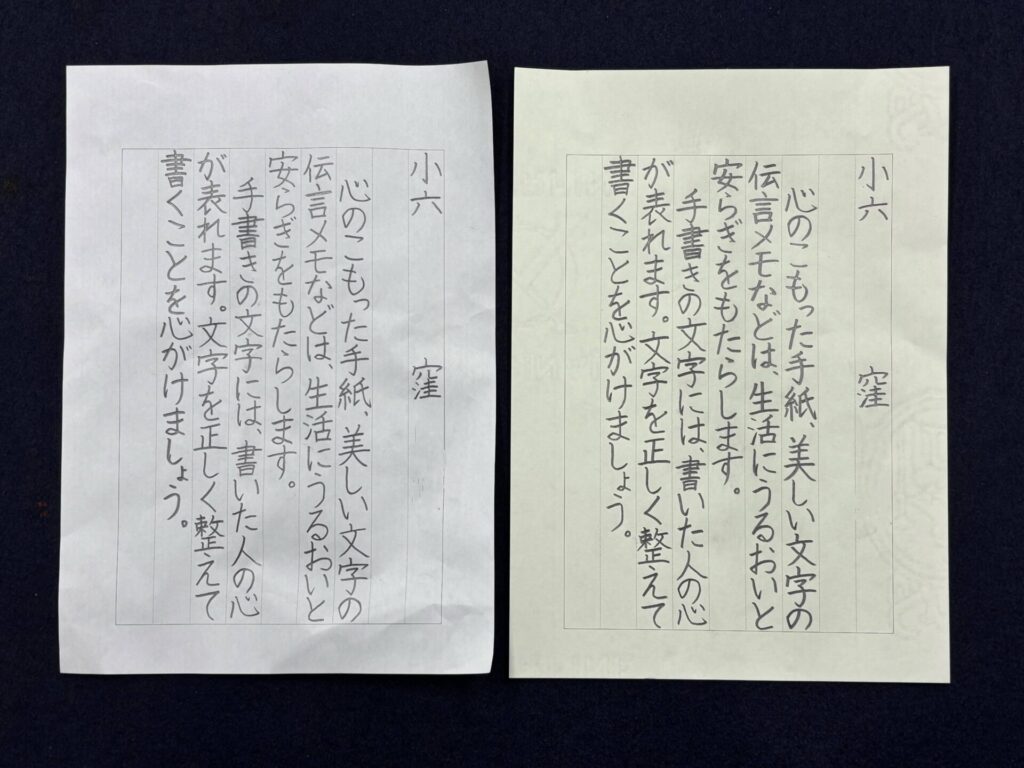 小六 窪
心のこもった手紙、美しい文字の
伝言メモなどは、生活にうるおいと
安らぎをもたらします。
手書きの文字には、書いた人の心
が表れます。文字を正しく整えて
書くことを心がけましょう。
小六 窪
心のこもった手紙、美しい文字の
伝言メモなどは、生活にうるおいと
安らぎをもたらします。
手書きの文字には、書いた人の心
が表れます。文字を正しく整えて
書くことを心がけましょう。